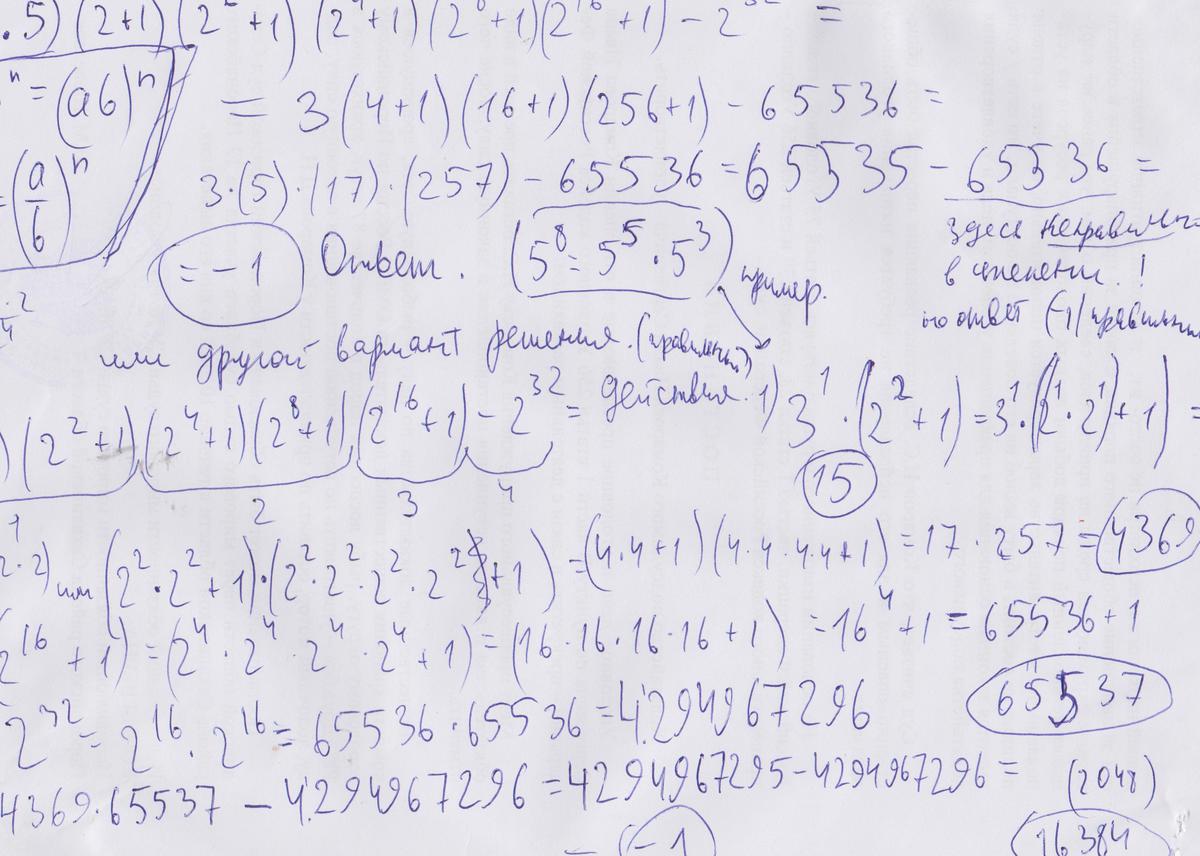 . 5) (2+1) (2² + 1) (2⁴ + 1) (2⁸ + 1)(2¹⁶ + 1) - 2³² =
ⁿ = (aб)ⁿ
= 3 (4+1) (16+1) (256+1) - 65536 =
= (a/б)ⁿ
3·(5)·(17)·(257) - 65536 = 65535 - 65536 =
здесь неправильно
в степени. !
= -1 Ответ. (5⁸ = 5⁵ · 5³) пример.
но ответ (-1) правильн
или другой вариант решения. (правильный)
) (2² + 1) (2⁴ + 1)(2⁸ + 1) (2¹⁶ + 1) - 2³² = действия. 1) 3¹ · (2² + 1) = 3¹ · ((2¹ · 2¹) + 1) =
1 2 3 4
15
2·2) или (2² · 2² + 1)·(2² · 2² · 2² · 2² + 1) = (4·4+1) (4·4·4·4+1) = 17 · 257 = 4369
2¹⁶ + 1) = (2⁴ · 2⁴ · 2⁴ · 2⁴ + 1) = (16·16·16·16 + 1) = 16⁴ + 1 = 65536 + 1
65537
2³² = 2¹⁶ · 2¹⁶ = 65536 · 65536 = 4.294967296
4369·65537 - 4.294967296 = 4294967295 - 4294967296 =
(2048)
= (-1
16384